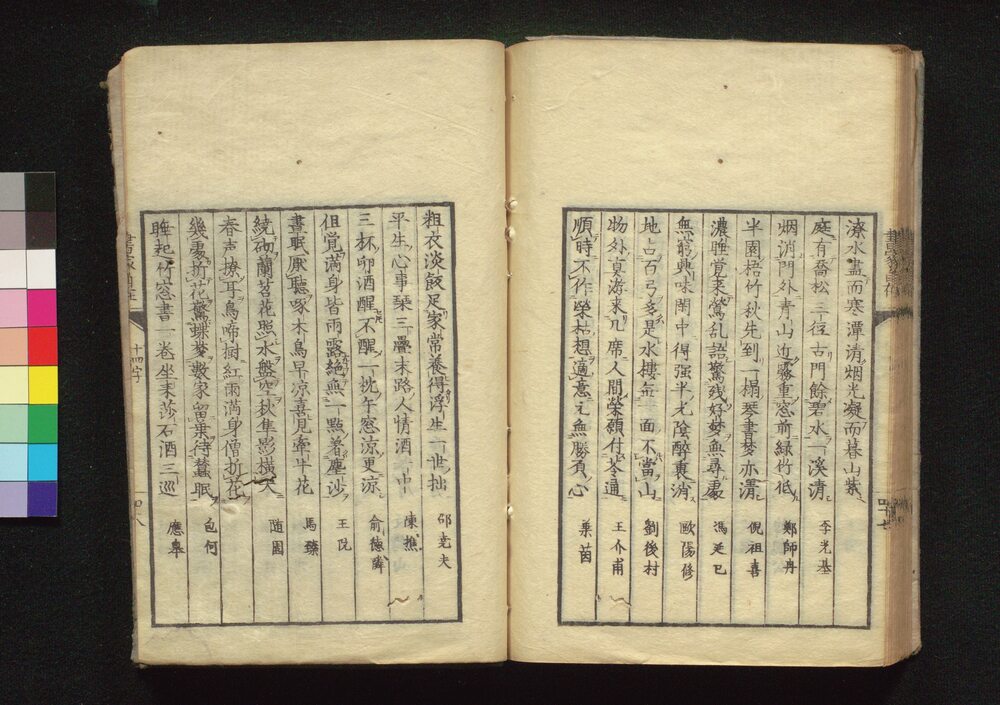 潦水盡而寒潭清烟光凝而暮山紫
庭有喬松三徑古門餘碧水一溪清 李光基
烟消門外青山近露重窓前緑竹低 鄭師冉
半園梧竹秋先到一榻琴書夢亦清 倪祖喜
濃睡覚来鶯乱語驚残好夢無尋處 馮延巳
無窮興味閑中得强半光陰醉裏消 歐陽修
地占百弓多是水樓無一面不當山 劉後村
物外真游来几席人間榮顇付苓通 王介甫
順時不作榮枯想適意元無勝負心 巣茵
粗衣淡飯足家常養得浮生一世拙 邵尭夫
平生心事琴三疊末路人情酒一中 陳樵
三杯卯酒醒不醒一枕午窓涼更涼 俞德鄰
但覚満身皆雨露絕無一點着塵沙 王阮
晝眠厭聽啄木鳥早凉喜見牽牛花 馬臻
繞砌蘭苕花照水盤空秋隼影横天 随園
春声撩耳鳥啼樹紅雨満身僧折花 包何
幾處折花驚蝶夢數家留葉待蠶眠
睡起竹窓書一卷坐来莎石酒三巡 應皐
四十七
四八